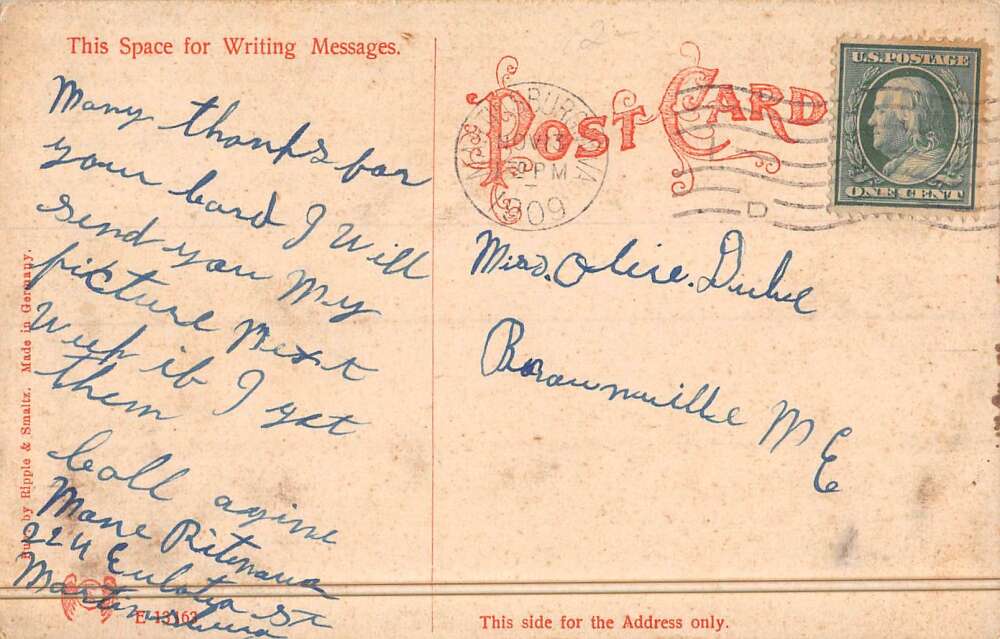 This Space for Writing Messages.
POST CARD
U.S. POSTAGE
ONE CENT
W. VA
13
PM
1909
D
Many thanks for
your card I Will
send you My
picture Next
Week if I get
them
Call agine
224 Eulatia St
Miss. Olive. Duke
Brownville ME
Pub. by Ripple & Smaltz. Made in Germany.
E 13163
This side for the Address only.